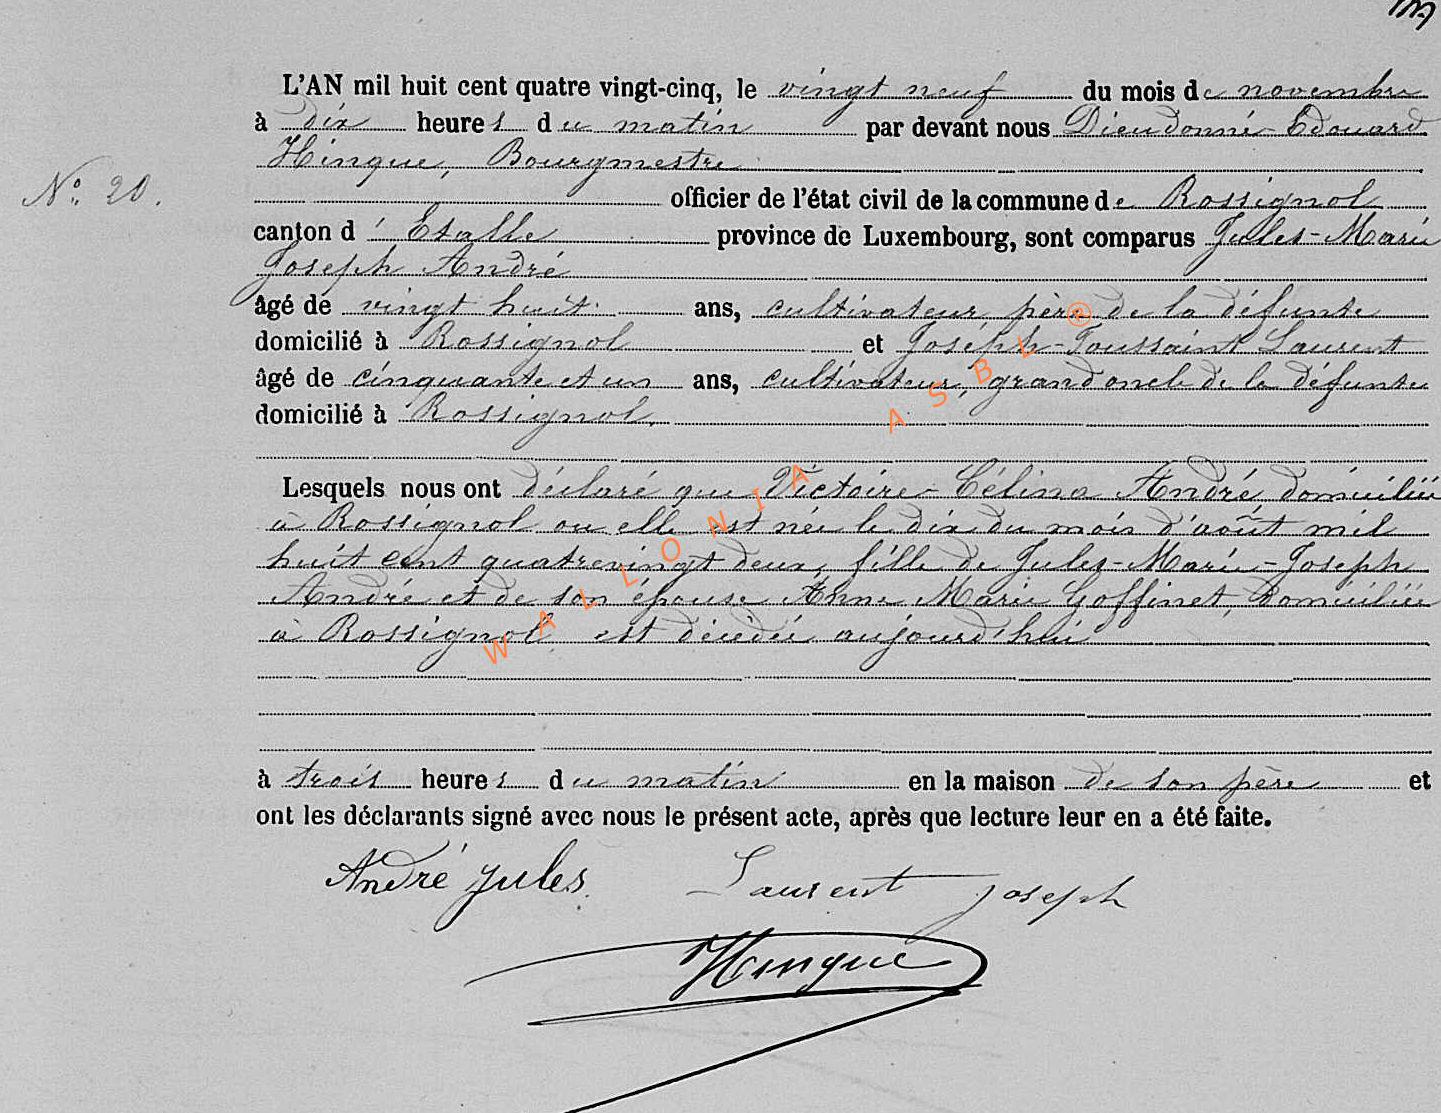 L'AN mil huit cent quatre vingt-cinq, le vingt neuf du mois de novembre
à dix heures du matin par devant nous Dieudonné Edouard
Hinque, Bourgmestre
N° 20.
officier de l'état civil de la commune de Rossignol
canton d'Etalle province de Luxembourg, sont comparus Jules-Marie
Joseph André
âgé de vingt huit ans, cultivateur, père de la défunte
domicilié à Rossignol et Joseph-Toussaint Laurent
âgé de cinquante et un ans, cultivateur, grand oncle de la défunte
domicilié à Rossignol.
Lesquels nous ont déclaré que Victoire-Célina André, domiciliée
à Rossignol ou elle est née le dix du mois d'août mil
huit cent quatrevingt deux, fille de Jules-Marie-Joseph
André et de son épouse Anne Marie Goffinet, domiciliée
à Rossignol est décédée aujourd'hui
à trois heures du matin en la maison de son père et
ont les déclarants signé avec nous le présent acte, après que lecture leur en a été faite.
André Jules. Laurent Joseph
Hinque
WALLONIA ASBL ®